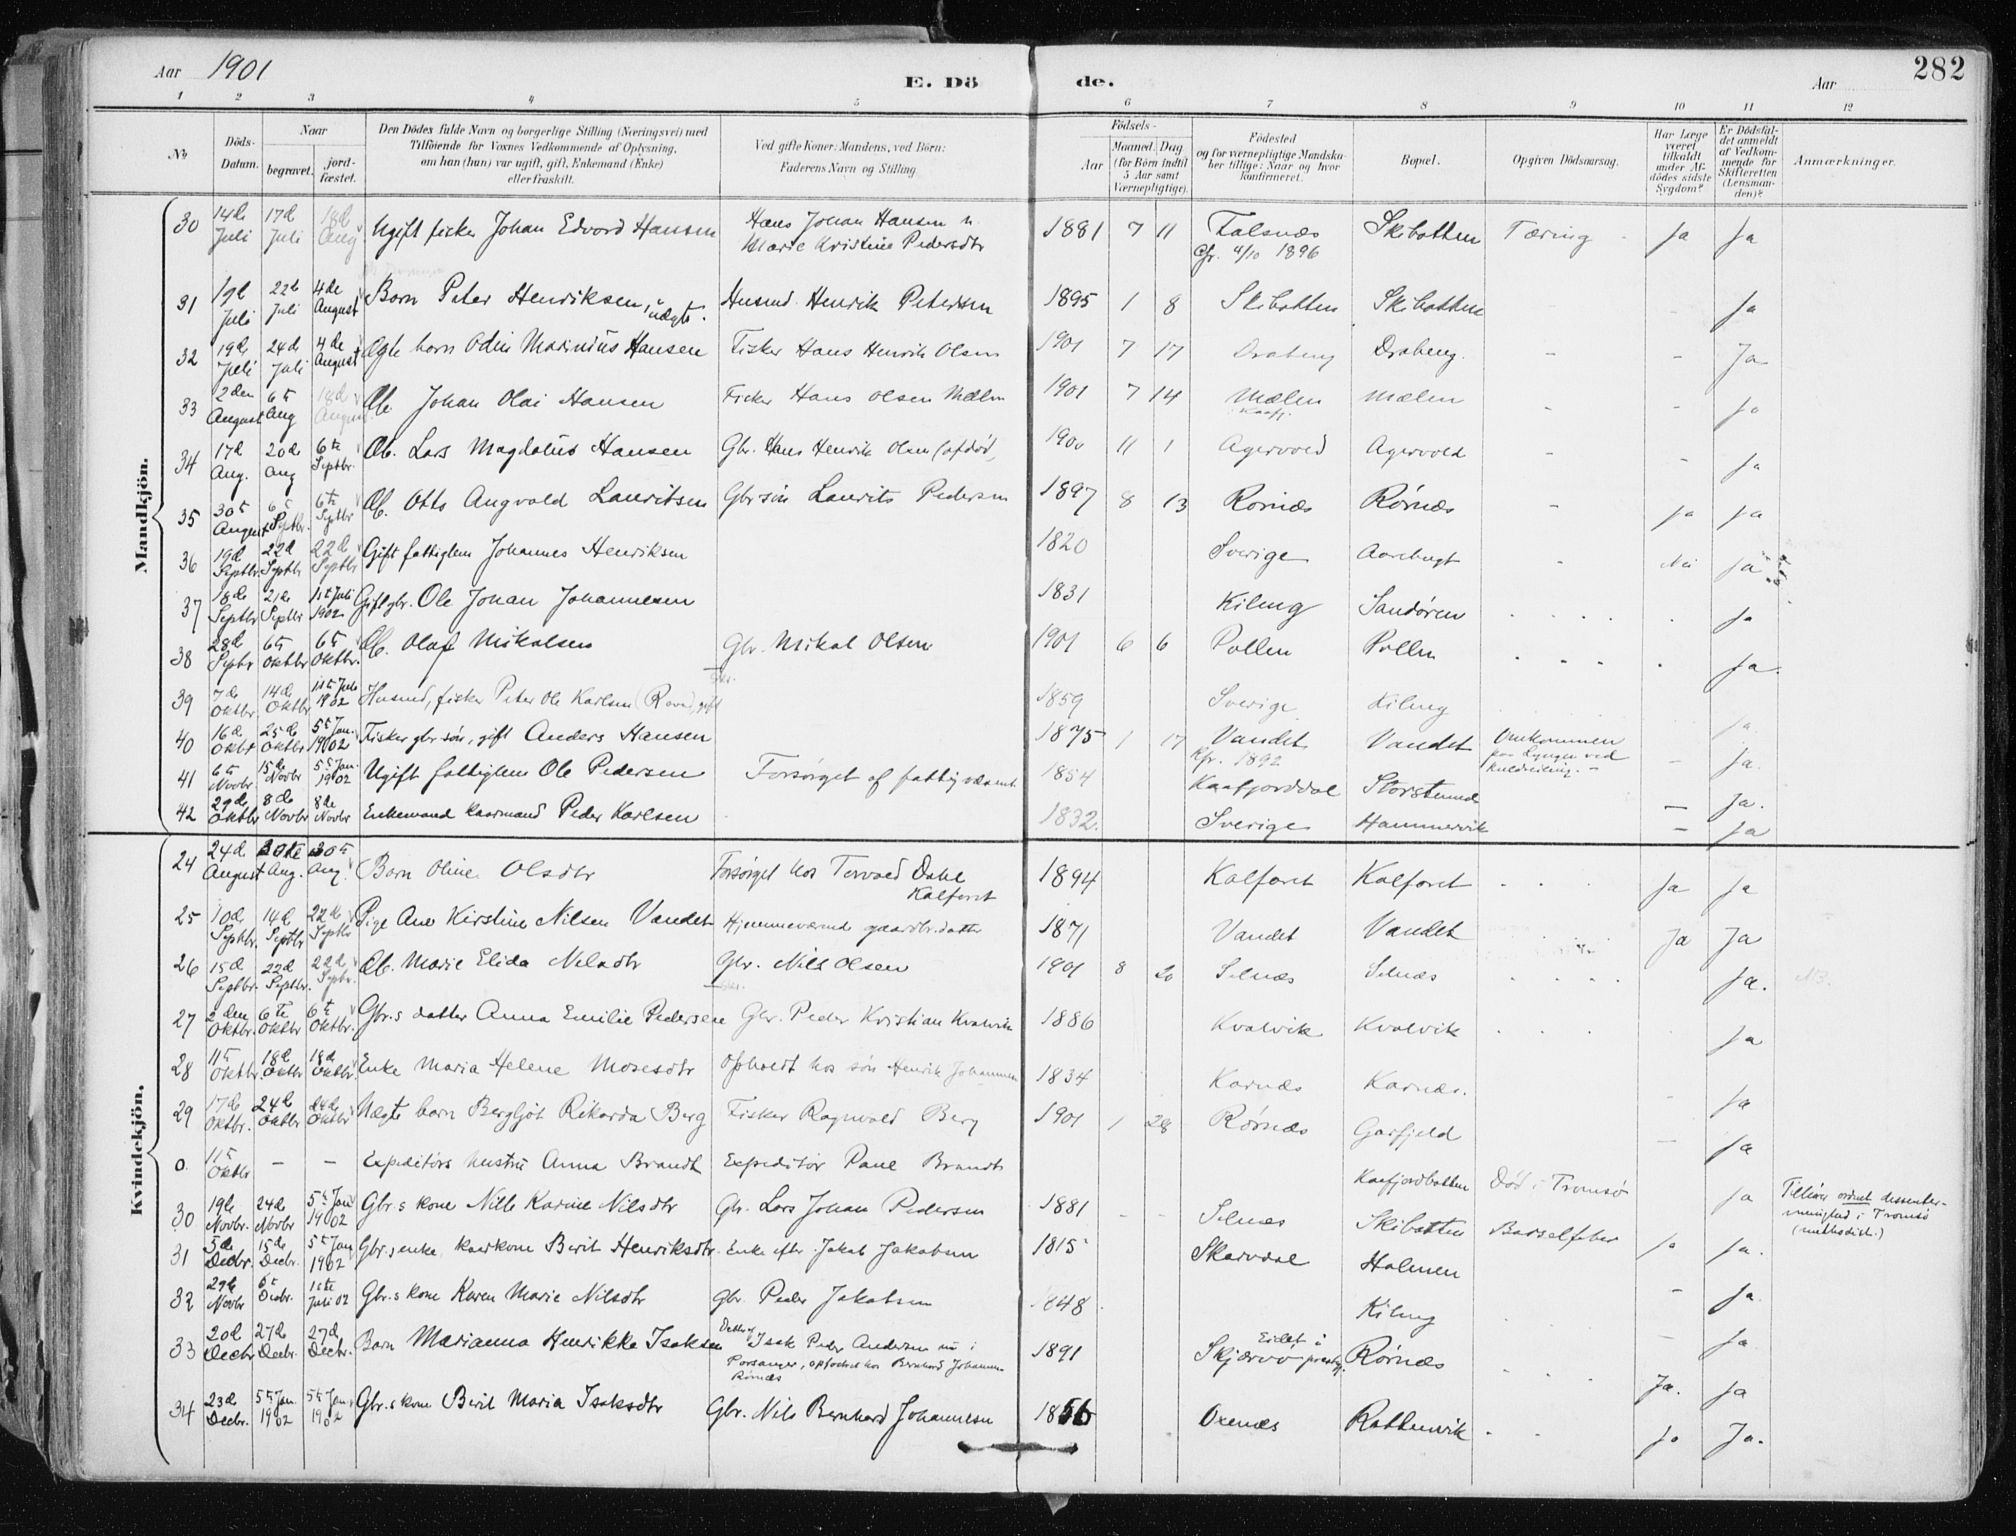 Aar 1901
E. Dö de.
Aar
282
1 2 3 4 5 6 7 8 9 10 11 12
No
Döds-Datum.
Naar
begravet.
jord-fæstet.
Den Dödes fulde Navn og borgerlige Stilling (Næringsvei) med
Tilföiende for Voxnes Vedkommende af Oplysning,
om han (hun) var ugift, gift, Enkemand (Enke)
eller fraskilt.
Ved gifte Koner: Mandens, ved Börn:
Faderens Navn og Stilling
Födsels-
Aar
Maaned. Dag
(for Börn indtil
5 Aar samt
Værnepligtige).
Födested
og for værnepligtige Mandska-
ber tillige: Naar og hvor
konfirmeret.
Bopæl.
Opgiven Dödsaarsag.
Har Læge
været
tilkaldt
under Af-
dödes sidste
Sygdom?
Er Dödsfal-
det anmeldt
af Vedkom-
mende for
Skifteretten
(Lensman-
den)?
Anmærkninger.
Mandkjön.
30 14de Juli 17d Juli 18d Aug Ugift fisker Johan Edvard Hansen Hans Johan Hansen n Marie Kristine Pedersdtr 1881 7 11 Falsnæs Skibotten Tæring ja ja
Cfr. 4/10 1896
31 19d Juli 22d Juli 4de August Barn Peter Henriksen, uægte. Husmd. Henrik Petersen 1895 1 8 Skibotten Skibotten - - ja
32 19d Juli 24d Juli 4de August Ægte barn Odin Marinius Hansen Fisker Hans Henrik Olsen 1901 7 17 Drabeng Drabeng. - - Ja
33 2den August 6te Aug 18d August Æb. Johan Olai Hansen Fisker Hans Olsen Mælen 1901 7 14 Mælen Mælen - - ja
Kaafj.
34 17d Aug. 20d Aug 6te Septbr. Æb. Lars Magdalus Hansen Gbr. Hans Henrik Olsen (afdød, 1900 11 1 Agervold Agervold - - ja
35 30te August 6te Septbr. 6te Septbr Æb. Otto Angvald Lauritsen Gbr søn Laurits Pedersen 1897 8 13 Rørnæs Rørnæs - ja ja
36 19d Septbr. 22d Septbr 22d Septbr Gift fattiglem Johannes Henriksen 1820 Sverige Aarebugt - Nei ja
37 18d Septbr 21de Septbr 1ste Juli 1902 Gift gbr. Ole Johan Johannesen 1831 Kileng Sandøren ja
38 28d Septbr 6te Oktbr 6te Oktbr. Æb. Olaf Mikalsen Gbr. Mikal Olsen 1901 6 6 Pollen Pollen ja.
39 7de Oktbr. 14d Oktbr 1ste Juli 1902 Husmd, fisker Peter Ole Karlsen (Rova), gift 1859 Sverige Kileng ja
40 16d Oktbr 25d Oktbr 5te Jan. 1902 Fisker gbr søn, gift Anders Hansen 1875 1 17 Vandet Vandet Omkommen paa Lyngen ved kuldseiling. - - ja.
Kfr. 1892
41 6te Novbr. 15de Novbr. 5te Jan. 1902 Ugift fattiglem Ole Pedersen Forsørget af fattigvæsenet. 1854 Kaafjorddal Storstennd - Ja.
42 29d Oktbr 8de Novbr 8de Novbr Enkemand kaarmand Peder Karlsen 1832. Sverige Hammervik - ja
Kvindekjön.
24 24d August 30te Aug. 30te Aug. Barn Oline Olsdtr Forsørget hos Torvald Dahl Kalforet 1894 Kalforet Kalforet ja ja
25 10d Septbr. 14d Septbr 22d Septbr Pige Ane Kirstine Nilsen Vandet Hjemmeværende gaardbr. datter 1871 Vandet Vandet Ja Ja
26 15d Septbr. 22d Septbr. 22d Septbr. Æb. Marie Elida Nilsdtr Gbr. Nils Olsen 1901 8 20 Selnæs Selnæs ja.
27 2den Oktbr. 6te Oktbr 6te Oktbr. Gbr.s datter Anna Emilie Pedersen Gbr. Peder Kristian Kvalvik 1886 Kvalvik Kvalvik ja
28 11te Oktbr. 18d Oktbr. 18d Oktbr. Enke Maria Helene Mosesdtr Opholdt hos søn Henrik Johannesen 1834 Karnæs Karnæs. - ja
29 17de Oktbr. 24d Oktbr 24de Oktbr Uægte barn Bergljot Rikarda Berg Fisker Ragnvald Berg 1901 1 28 Rørnæs Garfjeld - ja
0. 11te Oktbr - - Expeditørs hustru Anna Brandt Expeditør Paul Brandt Kaafjordbotten Død i Tromsø ja Tilhører ordnet dissenter-
menighed i Tromsø
(methodist.)
30 19de Novbr. 24d Novbr 5te Jan 1902 Gbr.s kone Nille Karine Nilsdtr Gbr. Lars Johan Pedersen 1881 - - Selnæs Skibotten Barselfeber ja ja.
31 5de Decbr. 15de Decbr. 5te Jan 1902 Gbr.s enke, kaarkone Berit Henriksdtr. Enke efter Jakob Jakobsen 1815 Skarvdal Holmen - ja.
32 29de Novbr 6te Decbr. 1ste Juli 02 Gbr.s kone Karen Marie Nilsdtr Gbr. Peder Jakobsen 1848 Kileng - ja
33 20d Decbr 27de Decbr. 27d Decbr. Barn Marianna Henrikke Isaksen Datter af Isak Peder Andersen nu i Porsanger, opfostret hos Bernhard Johannesen Rørnæs 1891 Eidet i Skjærvø præstegj. Rørnæs Ja. ja
34 23d Decbr. 5te Jan 1902 5te Jan. 1902 Gbr.s kone Berit Maria Isaksdtr Gbr. Nils Bernhard Johannesen 1856 Oxnæs Rottenvik ja Ja.